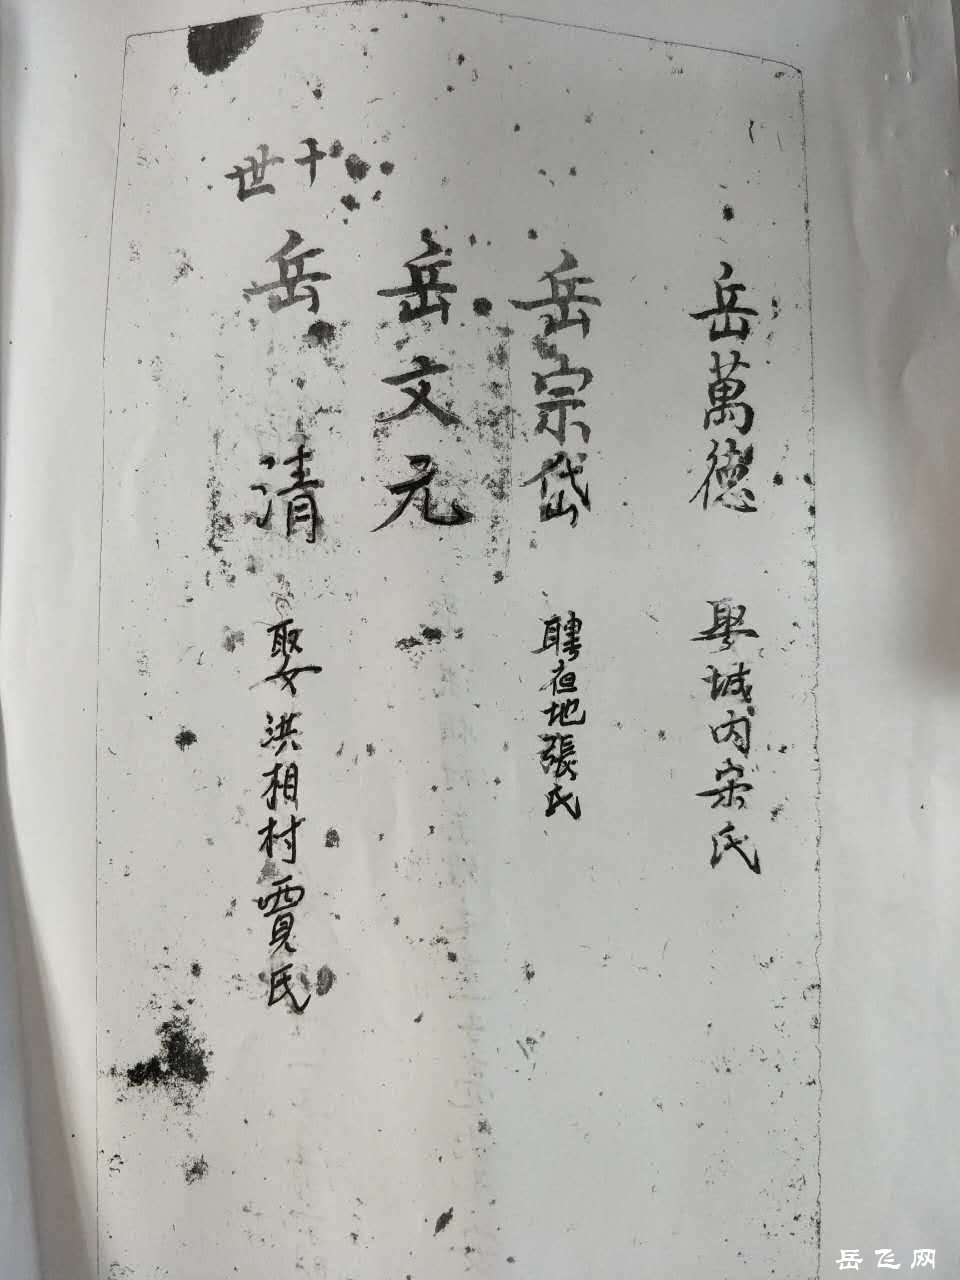 岳萬德 娶城内宋氏
岳宗岱 聘夜地張氏
岳文元
十世
岳清 娶洪相村賈氏
岳飞网